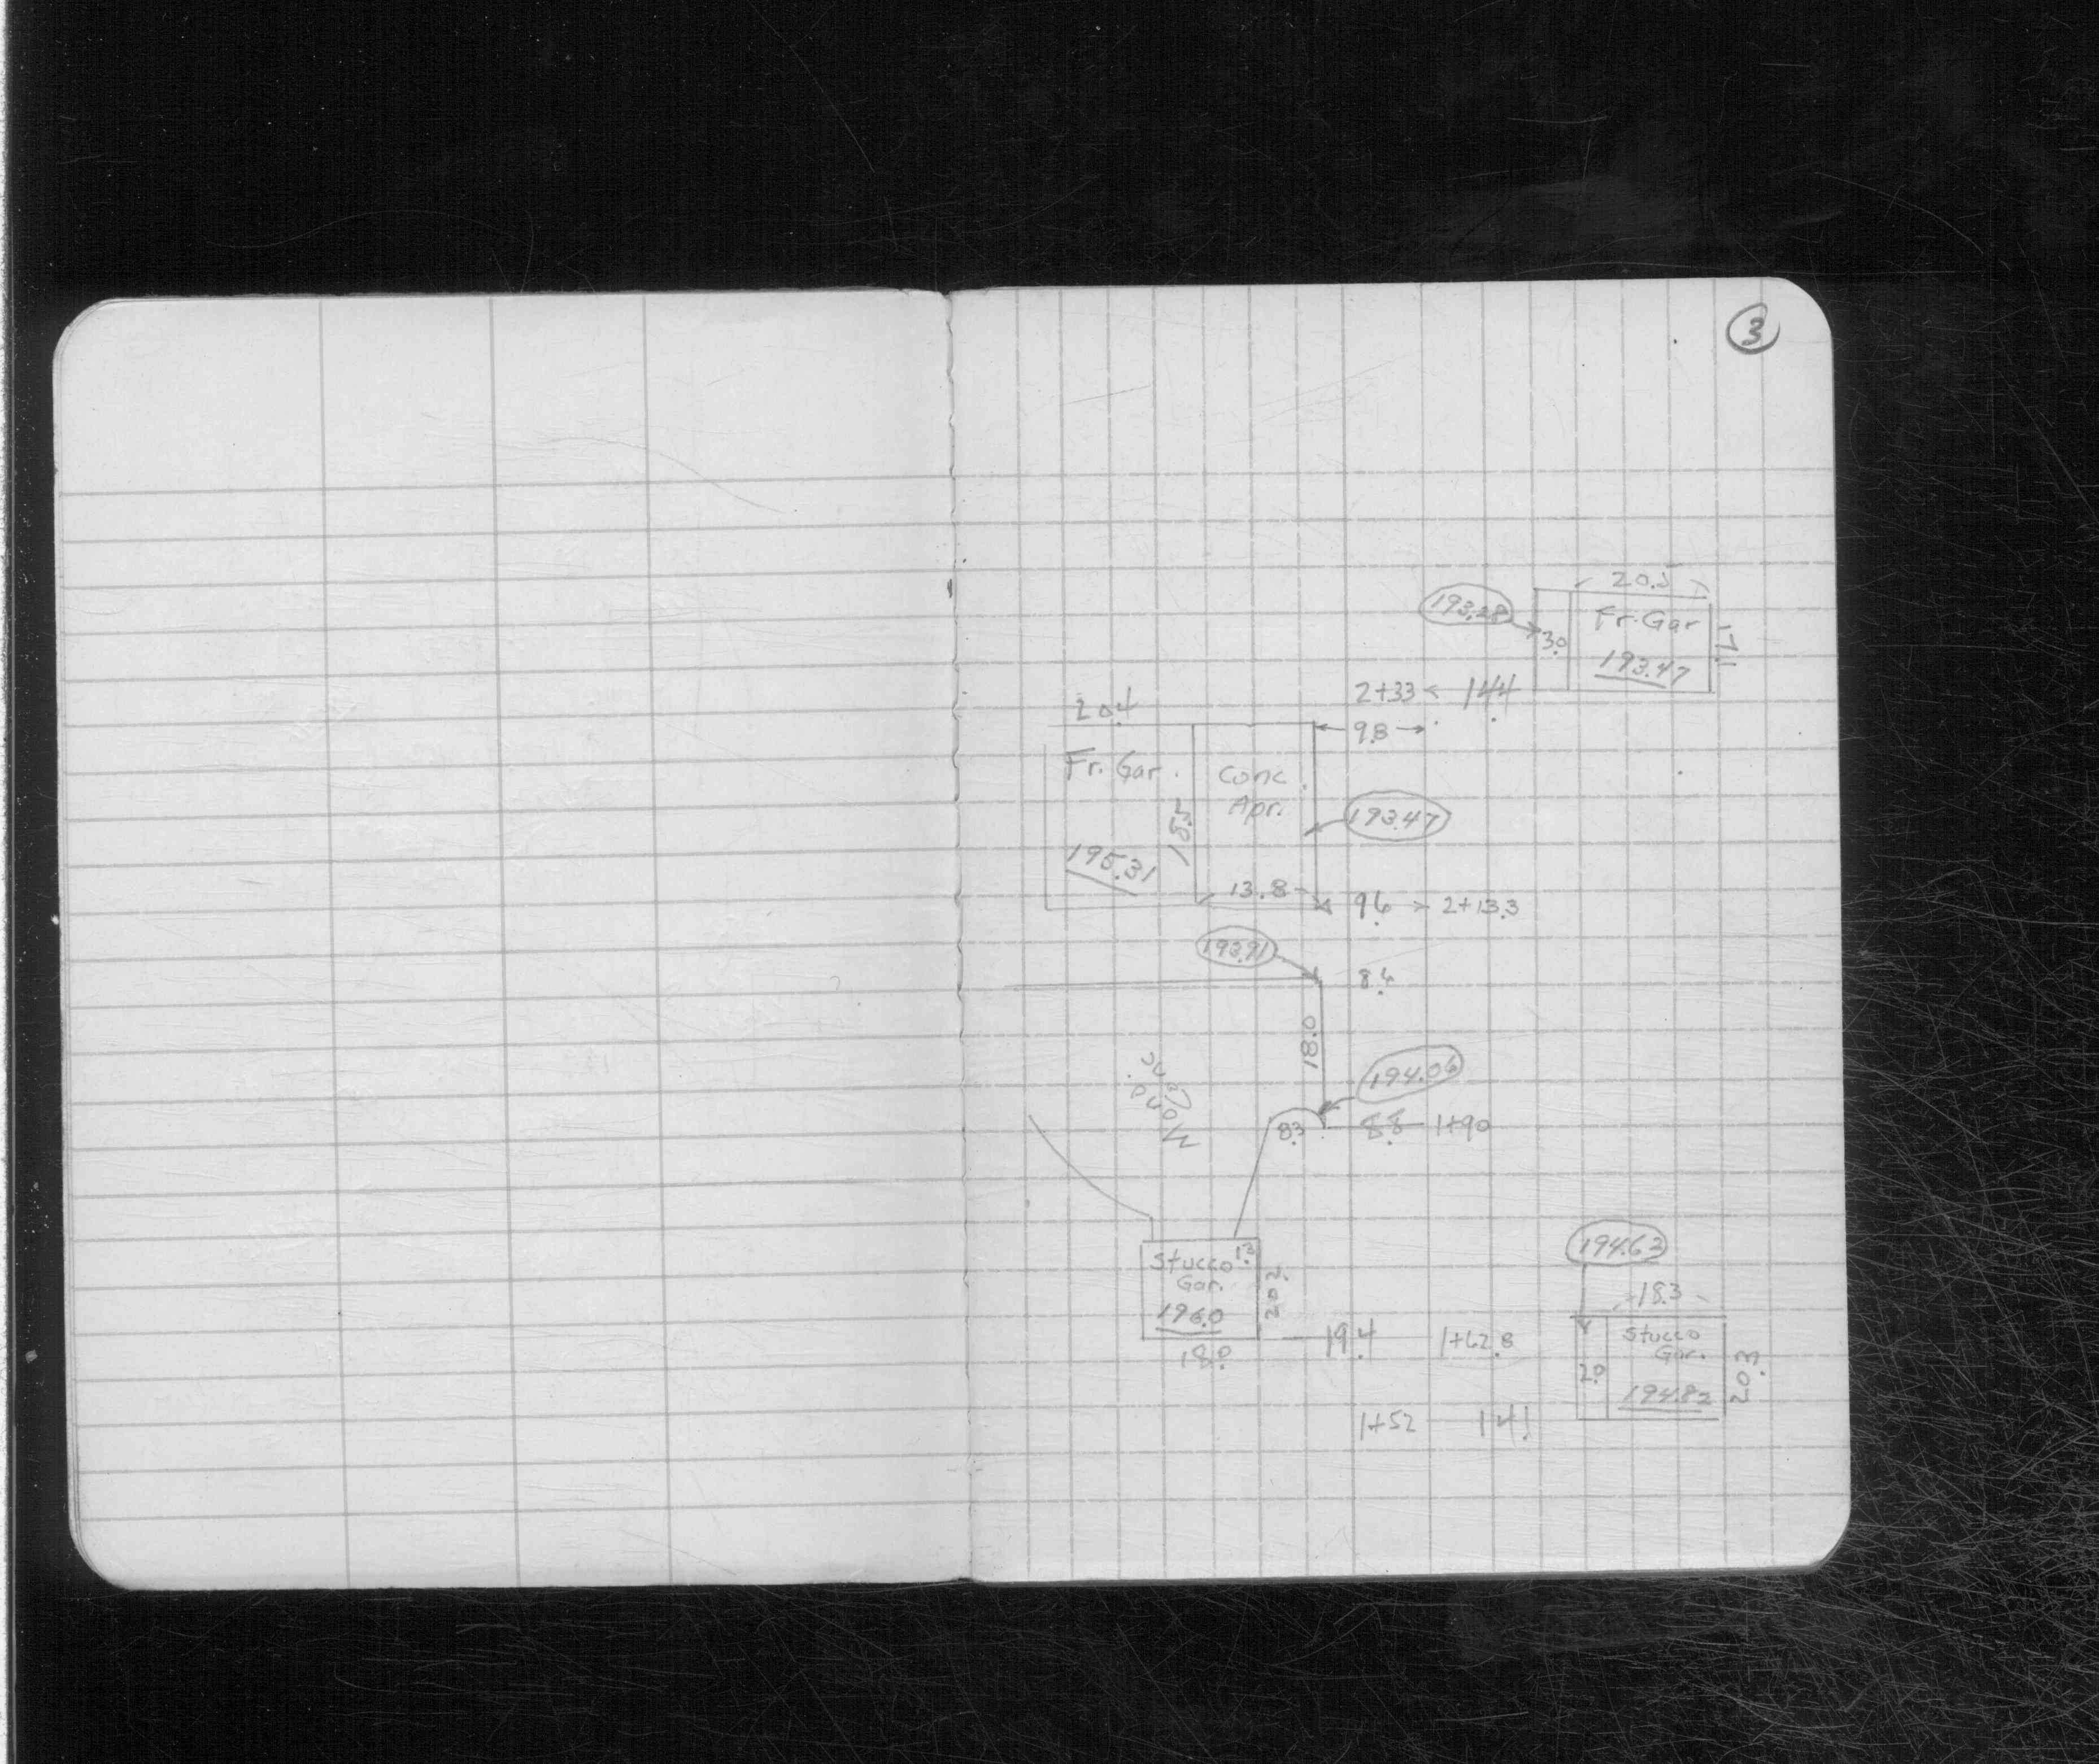 3
20.5
193.28
3.0
Fr. Gar
17.1
193.47
2+33
14.4
20.4
9.8
Fr. Gar.
Conc.
Apr.
18.5
193.47
195.31
13.8
9.6
2+13.3
193.91
8.4
18.0
194.06
Conc.
8.3
8.8
1+90
194.63
Stucco
1.3
Gar.
20.2
196.0
18.3
19.4
1+62.8
Stucco
Gar.
2.0
20.3
194.82
1+52
14.1